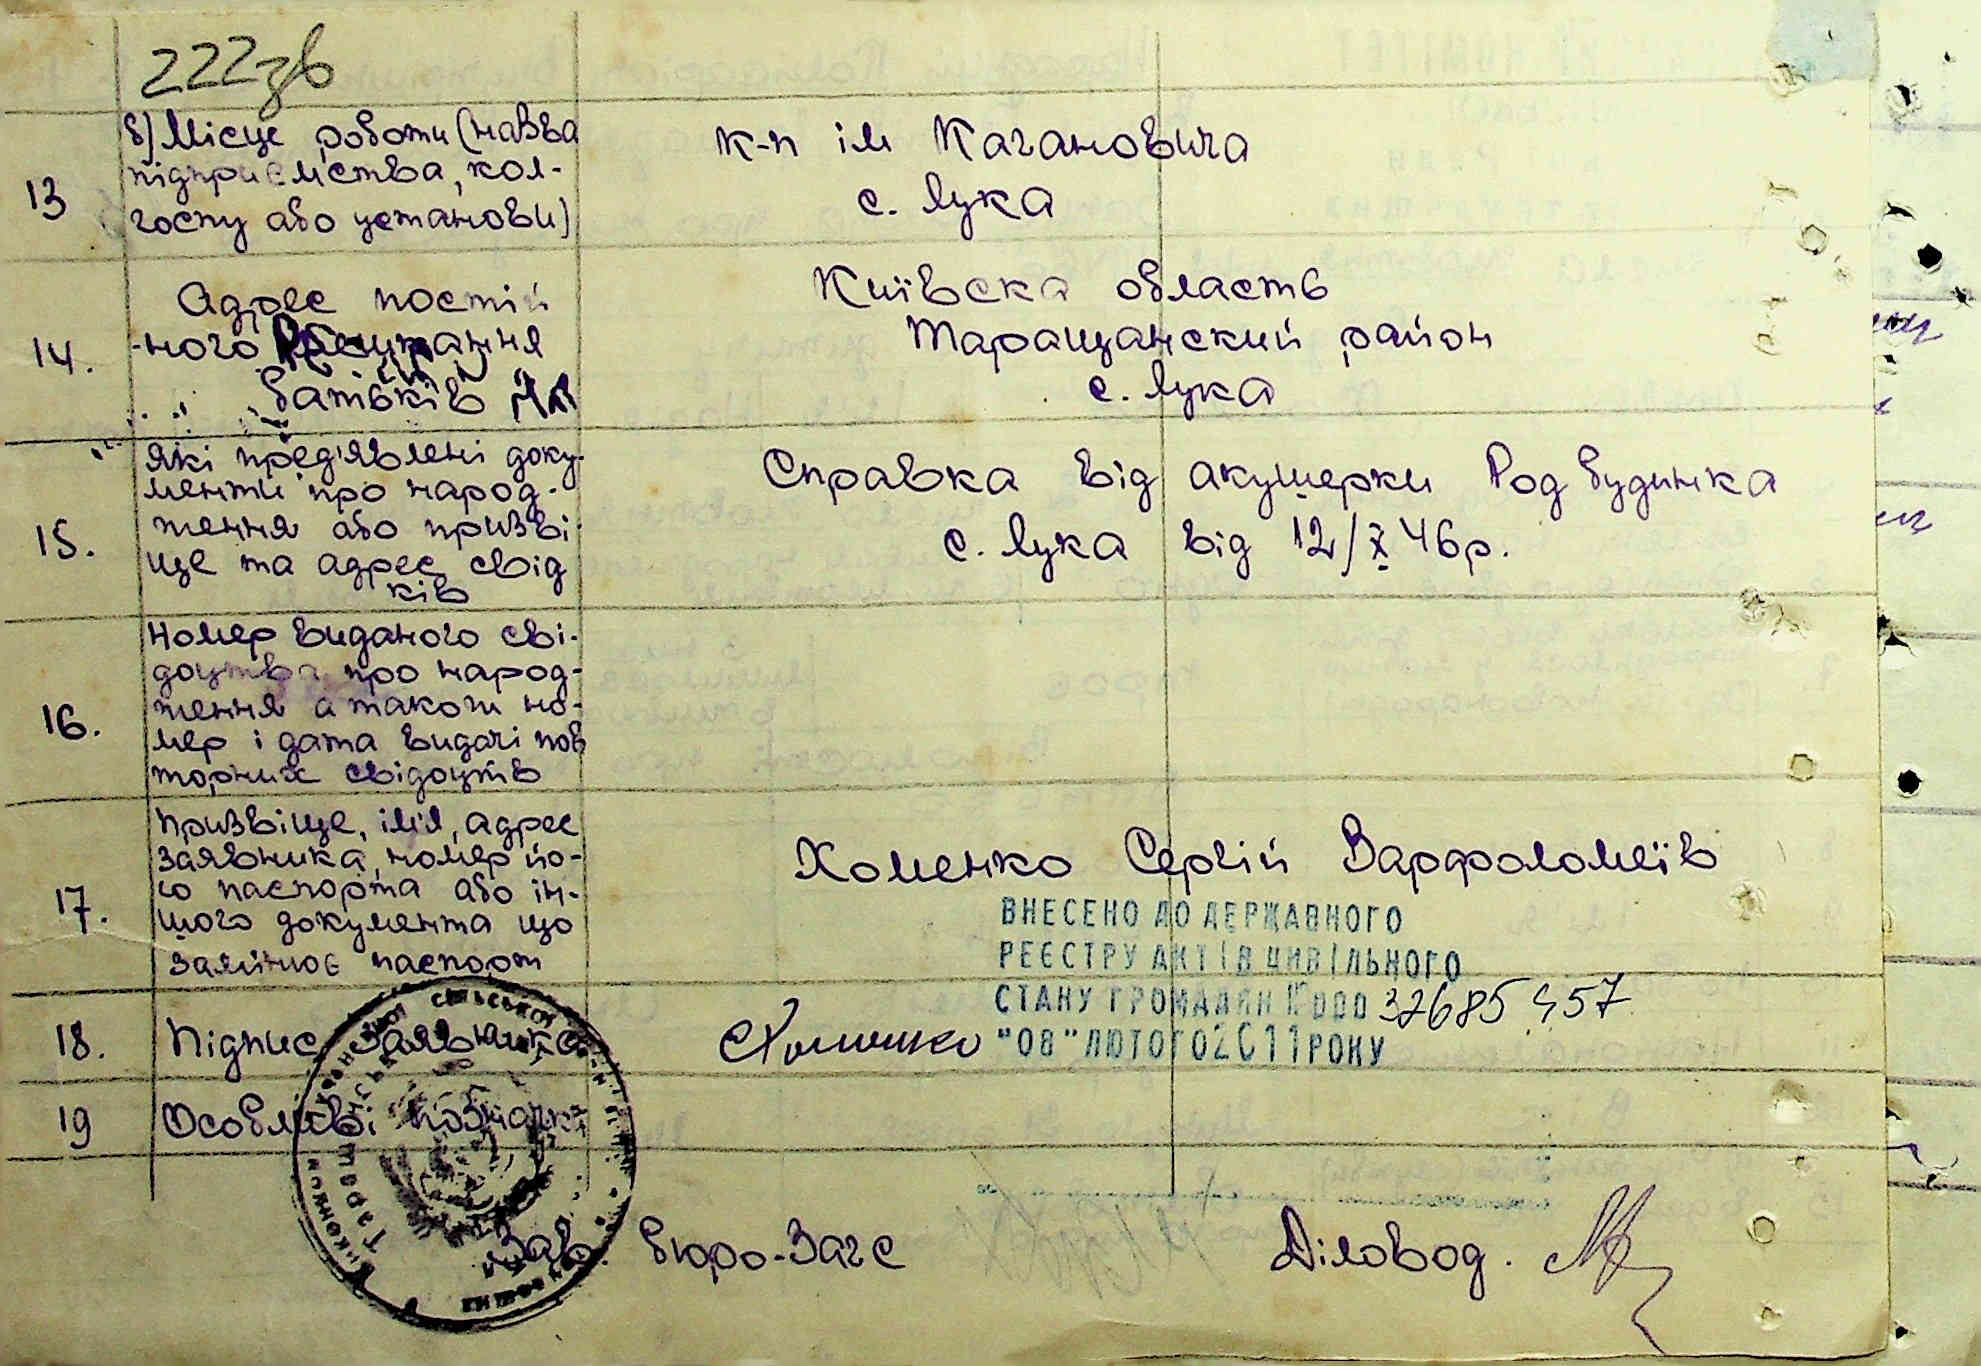 222зв
13
б) Місце роботи (назва
підприємства, кол-
госпу або установи)
к-п ім Кагановича
с. Лука
14.
Адрес постій
-ного
батьків
Київска область
Таращанский район
с. Лука
15.
які пред'явлені доку-
менти про народ-
ження або призві
ще та адрес свід
ків
Справка від акушерки Род будинка
с. Лука від 12/X 46р.
16.
Номер виданого сві-
доцтва про народ-
ження а також но-
мер і дата видачі пов
торних свідоцтв
17.
Призвіще, ім'я, адрес
заявника, номер йо-
го паспорта або ін-
шого документа що
заміннює паспорт
Хоменко Сергій Варфоломеїв
ВНЕСЕНО ДО ДЕРЖАВНОГО
РЕЄСТРУ АКТІВ ЦИВІЛЬНОГО
СТАНУ ГРОМАДЯН № 000 32685457
"08" ЛЮТОГО 2011 РОКУ
18.
Підпис Заявника
СХоменко
19
Особливі позначки
Зав. бюро-Загс
Діловод.